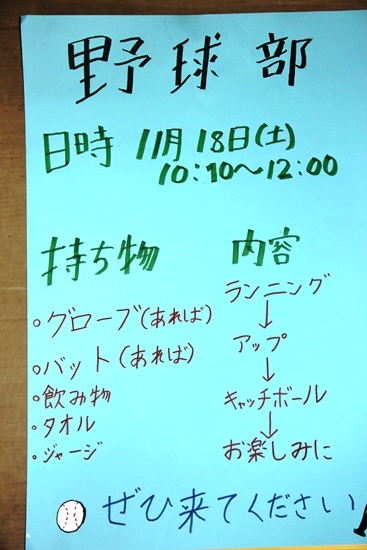 野球部
日時 11月18日(土)
10:10～12:00
持ち物
◦グローブ(あれば)
◦バット(あれば)
◦飲み物
◦タオル
◦ジャージ
内容
ランニング
↓
アップ
↓
キャッチボール
↓
お楽しみに
ぜひ来てください